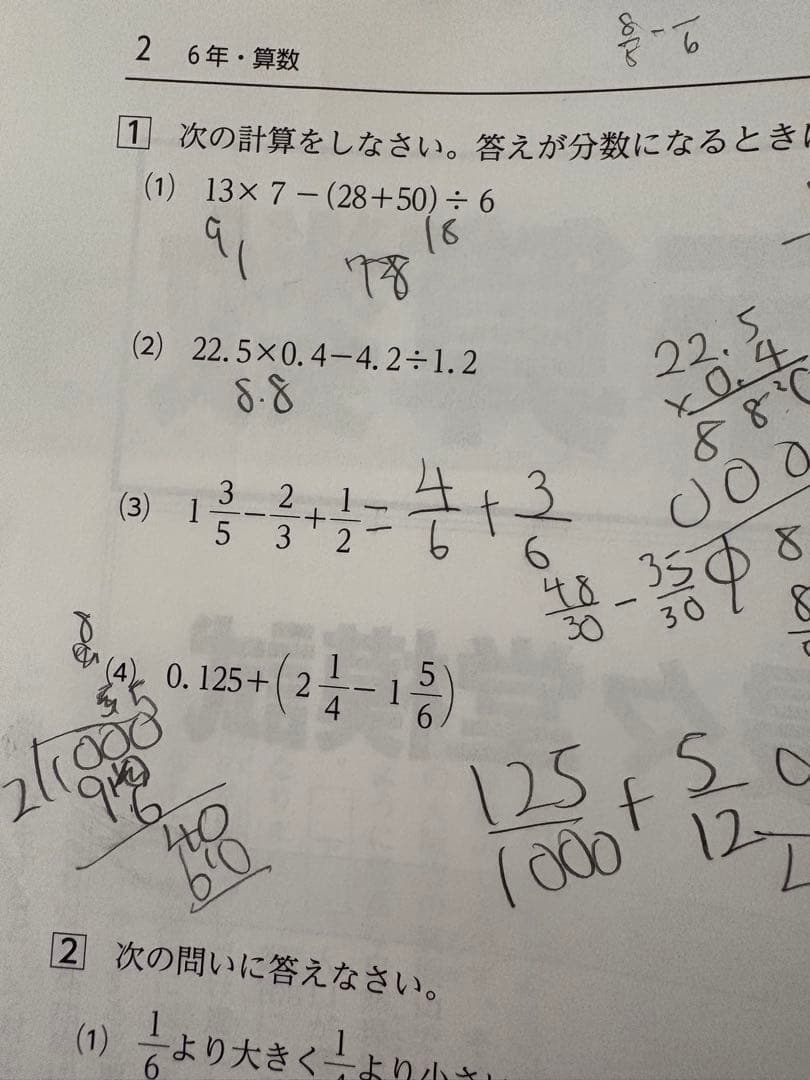 2 6年・算数
8/8 - /6
1 次の計算をしなさい。答えが分数になるとき
(1) 13×7-(28+50)÷6
91 78 18
(2) 22.5×0.4-4.2÷1.2
8.8
22.5
×0.4
(3) 1 3/5 - 2/3 + 1/2 = 4/6 + 3/6
48/30 - 35/30
(4) 0.125+(2 1/4 - 1 5/6)
1000
40
125/1000 + 5/12
2 次の問いに答えなさい。
(1) 1/6より大きく1/4より小さい